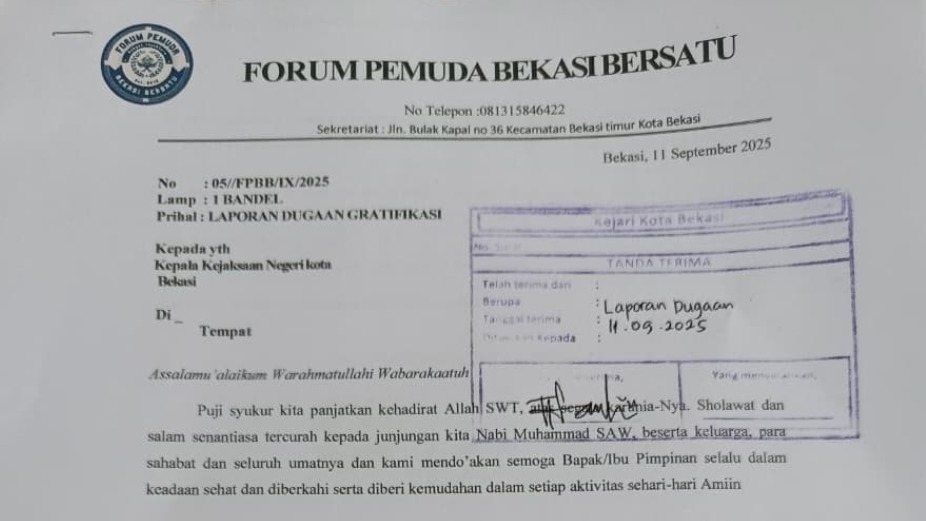 FORUM PEMUDA
BEKASI BERSATU
FORUM PEMUDA BEKASI BERSATU
No Telepon :081315846422
Sekretariat : Jln. Bulak Kapal no 36 Kecamatan Bekasi timur Kota Bekasi
Bekasi, 11 September 2025
No : 05//FPBB/IX/2025
Lamp : 1 BANDEL
Prihal : LAPORAN DUGAAN GRATIFIKASI
Kepada yth
Kepala Kejaksaan Negeri kota
Bekasi
Di _
Tempat
Kejari Kota Bekasi
No.
TANDA TERIMA
Telah terima dari :
Berupa : Laporan Dugaan
Tanggal terima : 11.09.2025
Kepada :
Assalamu'alaikum Warahmatullahi Wabarakaatuh
Puji syukur kita panjatkan kehadirat Allah SWT, atas segala karunia-Nya. Sholawat dan
salam senantiasa tercurah kepada junjungan kita Nabi Muhammad SAW, beserta keluarga, para
sahabat dan seluruh umatnya dan kami mendo'akan semoga Bapak/Ibu Pimpinan selalu dalam
keadaan sehat dan diberkahi serta diberi kemudahan dalam setiap aktivitas sehari-hari Amiin